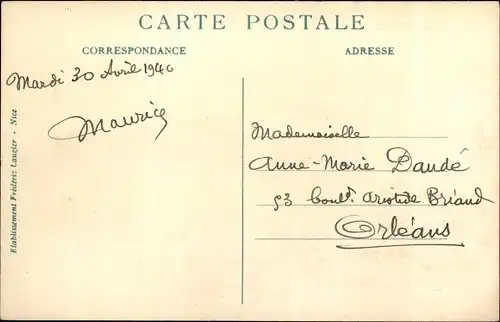 CARTE POSTALE
CORRESPONDANCE
ADRESSE
Mardi 30 Avril 1940
Maurice
Mademoiselle
Anne-Marie Daudé
53 boulᵈ. Aristide Briand
Orléans
Etablissement Frédéric Laugier - Nice